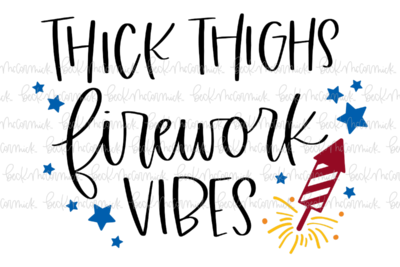 THICK THIGHS
firework
VIBES